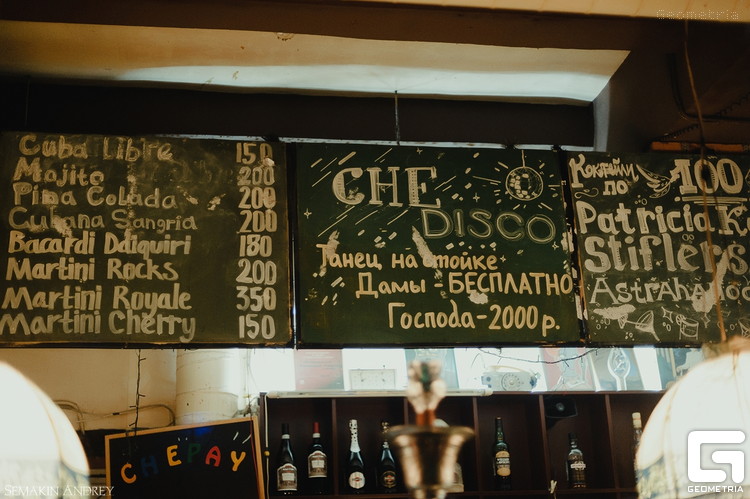 Geometria
Cuba Libre 150
Mojito 200
Pina Colada 200
Cubana Sangria 200
Bacardi Daiquiri 180
Martini Rocks 200
Martini Royale 350
Martini Cherry 150
CHE
DISCO
Танец на стойке
Дамы - БЕСПЛАТНО
Господа - 2000 р.
Коктейли
по 100
Patricia K
Stifler's
Astrahan
CHEPAY
SEMAKIN ANDREY
GEOMETRIA